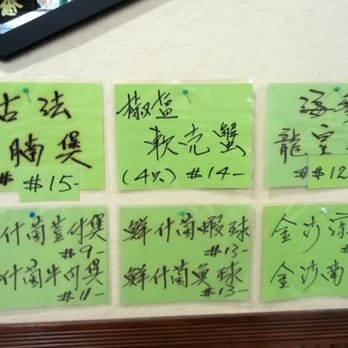 古法
腩煲
#15-
椒盐
軟壳蟹
(4只) #14-
龍
#12
鮮什菌蝦球
#13-
鮮什菌魚球
#13-
什菌
煲
#9-
什菌牛肉煲
#11-
金沙
金沙南